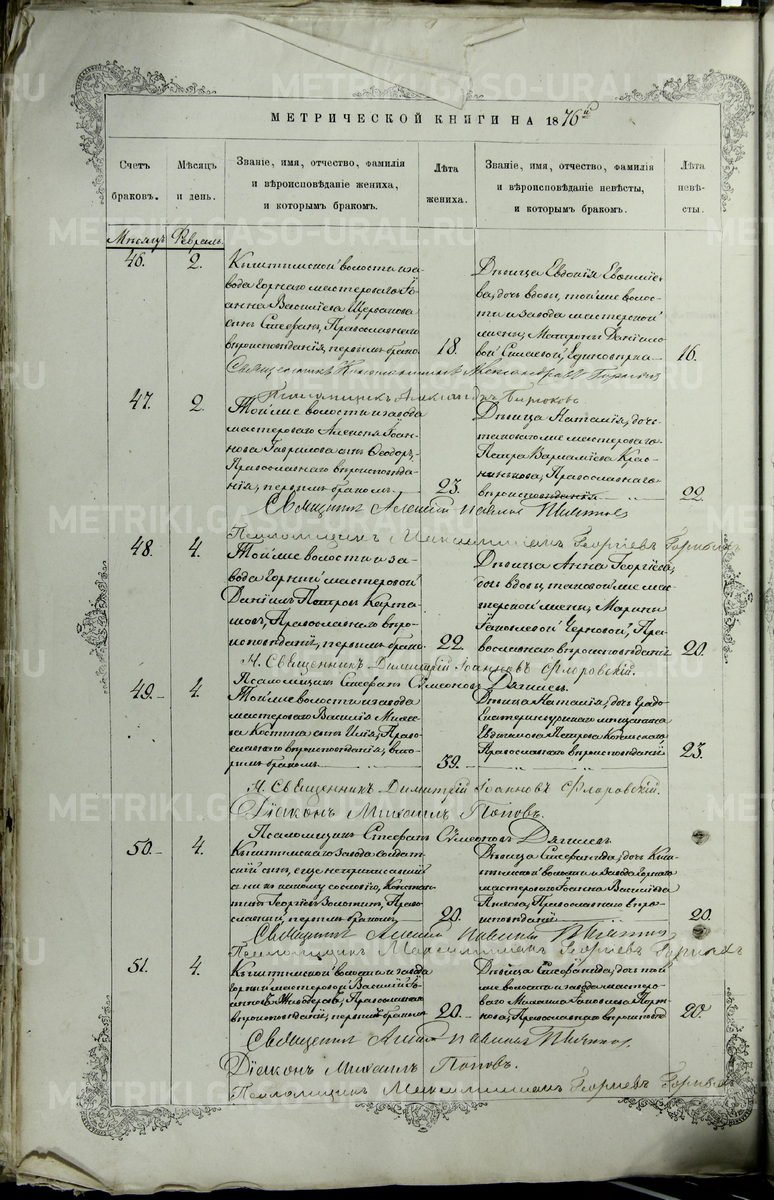 МЕТРИЧЕСКОЙ КНИГИ НА 1876й
Счетъ браковъ.
Мѣсяцъ и день.
Званіе, имя, отчество, фамилія и вѣроисповѣданіе жениха, и которымъ бракомъ.
Лѣта жениха.
Званіе, имя, отчество, фамилія и вѣроисповѣданіе невѣсты, и которымъ бракомъ.
Лѣта невѣсты.
Мѣсяцъ Февраль
46.
2.
Кыштымской волости и за-
вода горнаго мастероваго Іо-
анна Васильева Щербакова
сынъ Стефанъ, Православнаго
вѣроисповѣданія, первымъ брако.
18.
Дѣвица Евдокія Евѳиміе-
ва, дочь вдовы, той же волос-
ти и завода мастерской
жены, Матроны Даниило-
вой
16.
Священникъ Константинъ Александровъ
Псаломщикъ Александръ Бирюковъ
47.
2.
Той же волости и завода
мастероваго Алексѣя Іоан-
нова Гаврилова сынъ Ѳеодоръ,
Православнаго вѣроисповѣда-
нія, первымъ бракомъ
23.
Дѣвица Наталія, дочь
таковаго же мастероваго
Петра Варламіева Крас-
никова, Православнаго
вѣроисповѣданія
22.
Священникъ Алексій Павловъ
Псаломщикъ Максимиліанъ Георгіевъ Горныхъ
48.
4.
Той же волости и за-
вода горный мастеровой
Даніилъ Петровъ Карта-
шовъ, Православнаго вѣро-
исповѣданія, первымъ брако.
22.
Дѣвица Анна Георгіева,
дочь вдовы, таковой же мас-
терской жены, Марины
Іаковлевой Черновой, Пра-
вославнаго вѣроисповѣданія
20.
И. Священникъ Димитрій Іоанновъ Флоровскій.
Псаломщикъ Стефанъ Сѵмеоновъ Дягилевъ.
49.
4.
Той же волости и завода
мастероваго Василія
Костина сынъ Илія, Право-
славнаго вѣроисповѣданія, вто-
рымъ бракомъ
39.
Дѣвица Наталія, дочь Градо
Екатеринбургскаго мѣщанина
Евдокима Петрова
Православнаго вѣроисповѣданія
23.
И. Священникъ Димитрій Іоанновъ Флоровскій.
Діаконъ Михаилъ Поповъ.
Псаломщикъ Стефанъ Сѵмеоновъ Дягилевъ
50.
4.
Кыштымскаго завода солдат-
скій сынъ, еще не приписавшій-
ся ни къ какому сословію, Констан-
тинъ Георгіевъ Золотинъ, Право-
славный, первымъ бракомъ
20.
Дѣвица Стефанида, дочь Кыш-
тымской волости и завода горнаго
мастероваго Іоанна Васильева
Православнаго вѣро-
исповѣданія
20.
Священникъ Алексій Павловъ
Псаломщикъ Максимиліанъ Георгіевъ Горныхъ
51.
4.
Кыштымской волости и завода
горный мастеровой Василій Іо-
анновъ Жлудеровъ, Православнаго
вѣроисповѣданія, первымъ бракомъ
20.
Дѣвица Стефанида, дочь той
же волости и завода мастеро-
ваго Михаила Іаковлева Порт-
нова, Православнаго вѣроисповѣд
20.
Священникъ Алексій Павловъ
Діаконъ Михаилъ Поповъ.
Псаломщикъ Максимиліанъ Георгіевъ Горныхъ
METRIKI.GASO-URAL.RU